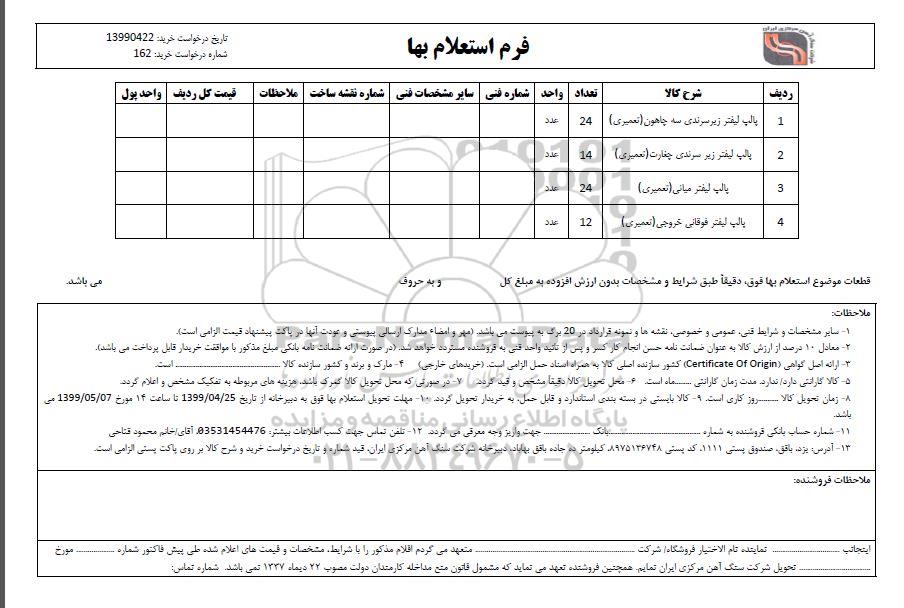 فرم استعلام بها
تاریخ درخواست خرید: 13990422
شماره درخواست خرید: 162
ردیف شرح کالا تعداد واحد شماره فنی سایر مشخصات فنی شماره نقشه ساخت ملاحظات قیمت کل ردیف واحد پول
1 پالپ لیفتر زیرسرندی سه چاهون(تعمیری) 24 عدد
2 پالپ لیفتر زیر سرندی چغارت(تعمیری) 14 عدد
3 پالپ لیفتر میانی(تعمیری) 24 عدد
4 پالپ لیفتر فوقانی خروجی(تعمیری) 12 عدد
قطعات موضوع استعلام بها فوق، دقیقاً طبق شرایط و مشخصات بدون ارزش افزوده به مبلغ کل و به حروف می باشد.
ملاحظات:
۱- سایر مشخصات و شرایط فنی، عمومی و خصوصی، نقشه ها و نمونه قرارداد در 20 برگ به پیوست می باشد. (مهر و امضاء مدارک ارسالی پیوستی و عودت آنها در پاکت پیشنهاد قیمت الزامی است).
۲- معادل ۱۰ درصد از ارزش کالا به عنوان ضمانت نامه حسن انجام کار کسر و پس از تائید واحد فنی به فروشنده مسترد خواهد شد. (در صورت ارائه ضمانت نامه بانکی مبلغ مذکور با موافقت خریدار قابل پرداخت می باشد).
۳- ارائه اصل گواهی (Certificate Of Origin) کشور سازنده اصلی کالا به همراه اسناد حمل الزامی است. (خریدهای خارجی) ۴- مارک و برند و کشور سازنده کالا ........ است.
۵- کالا گارانتی دارد/ ندارد. مدت زمان گارانتی ........ماه است. ۶- محل تحویل کالا دقیقاً مشخص و قید گردد. ۷- در صورتی که محل تحویل کالا گمرک باشد، هزینه های مربوطه به تفکیک مشخص و اعلام گردد.
۸- زمان تحویل کالا ........روز کاری است. ۹- کالا بایستی در بسته بندی استاندارد و قابل حمل، به خریدار تحویل گردد. ۱۰- مهلت تحویل استعلام بها فوق به دبیرخانه از تاریخ 1399/04/25 تا ساعت ۱۴ مورخ 1399/05/07 می
باشد.
۱۱- شماره حساب بانکی فروشنده به شماره ........بانک ........ جهت واریز وجه معرفی می گردد. ۱۲- تلفن تماس جهت کسب اطلاعات بیشتر: 03531454476، آقای/خانم محمود فتاحی
۱۳- آدرس: یزد، بافق، صندوق پستی ۱۱۱۱، کد پستی ۸۹۷۵۱۳۶۷۴۸، کیلومتر ده جاده بافق بهاباد، دبیرخانه شرکت سنگ آهن مرکزی ایران، قید شماره و تاریخ درخواست خرید و شرح کالا بر روی پاکت پستی الزامی است.
پایگاه اطلاع رسانی مناقصه و مزایده
۰۲۱-۸۸۳۴۹۶۷۰-۵
ملاحظات فروشنده:
اینجانب ........ نماینده تام الاختیار فروشگاه/ شرکت ........ متعهد می گردم اقلام مذکور را با شرایط، مشخصات و قیمت های اعلام شده طی پیش فاکتور شماره ........ مورخ
........ تحویل شرکت سنگ آهن مرکزی ایران نمایم. همچنین فروشنده تعهد می نماید که مشمول قانون منع مداخله کارمندان دولت مصوب ۲۲ دیماه ۱۳۳۷ نمی باشد. شماره تماس: